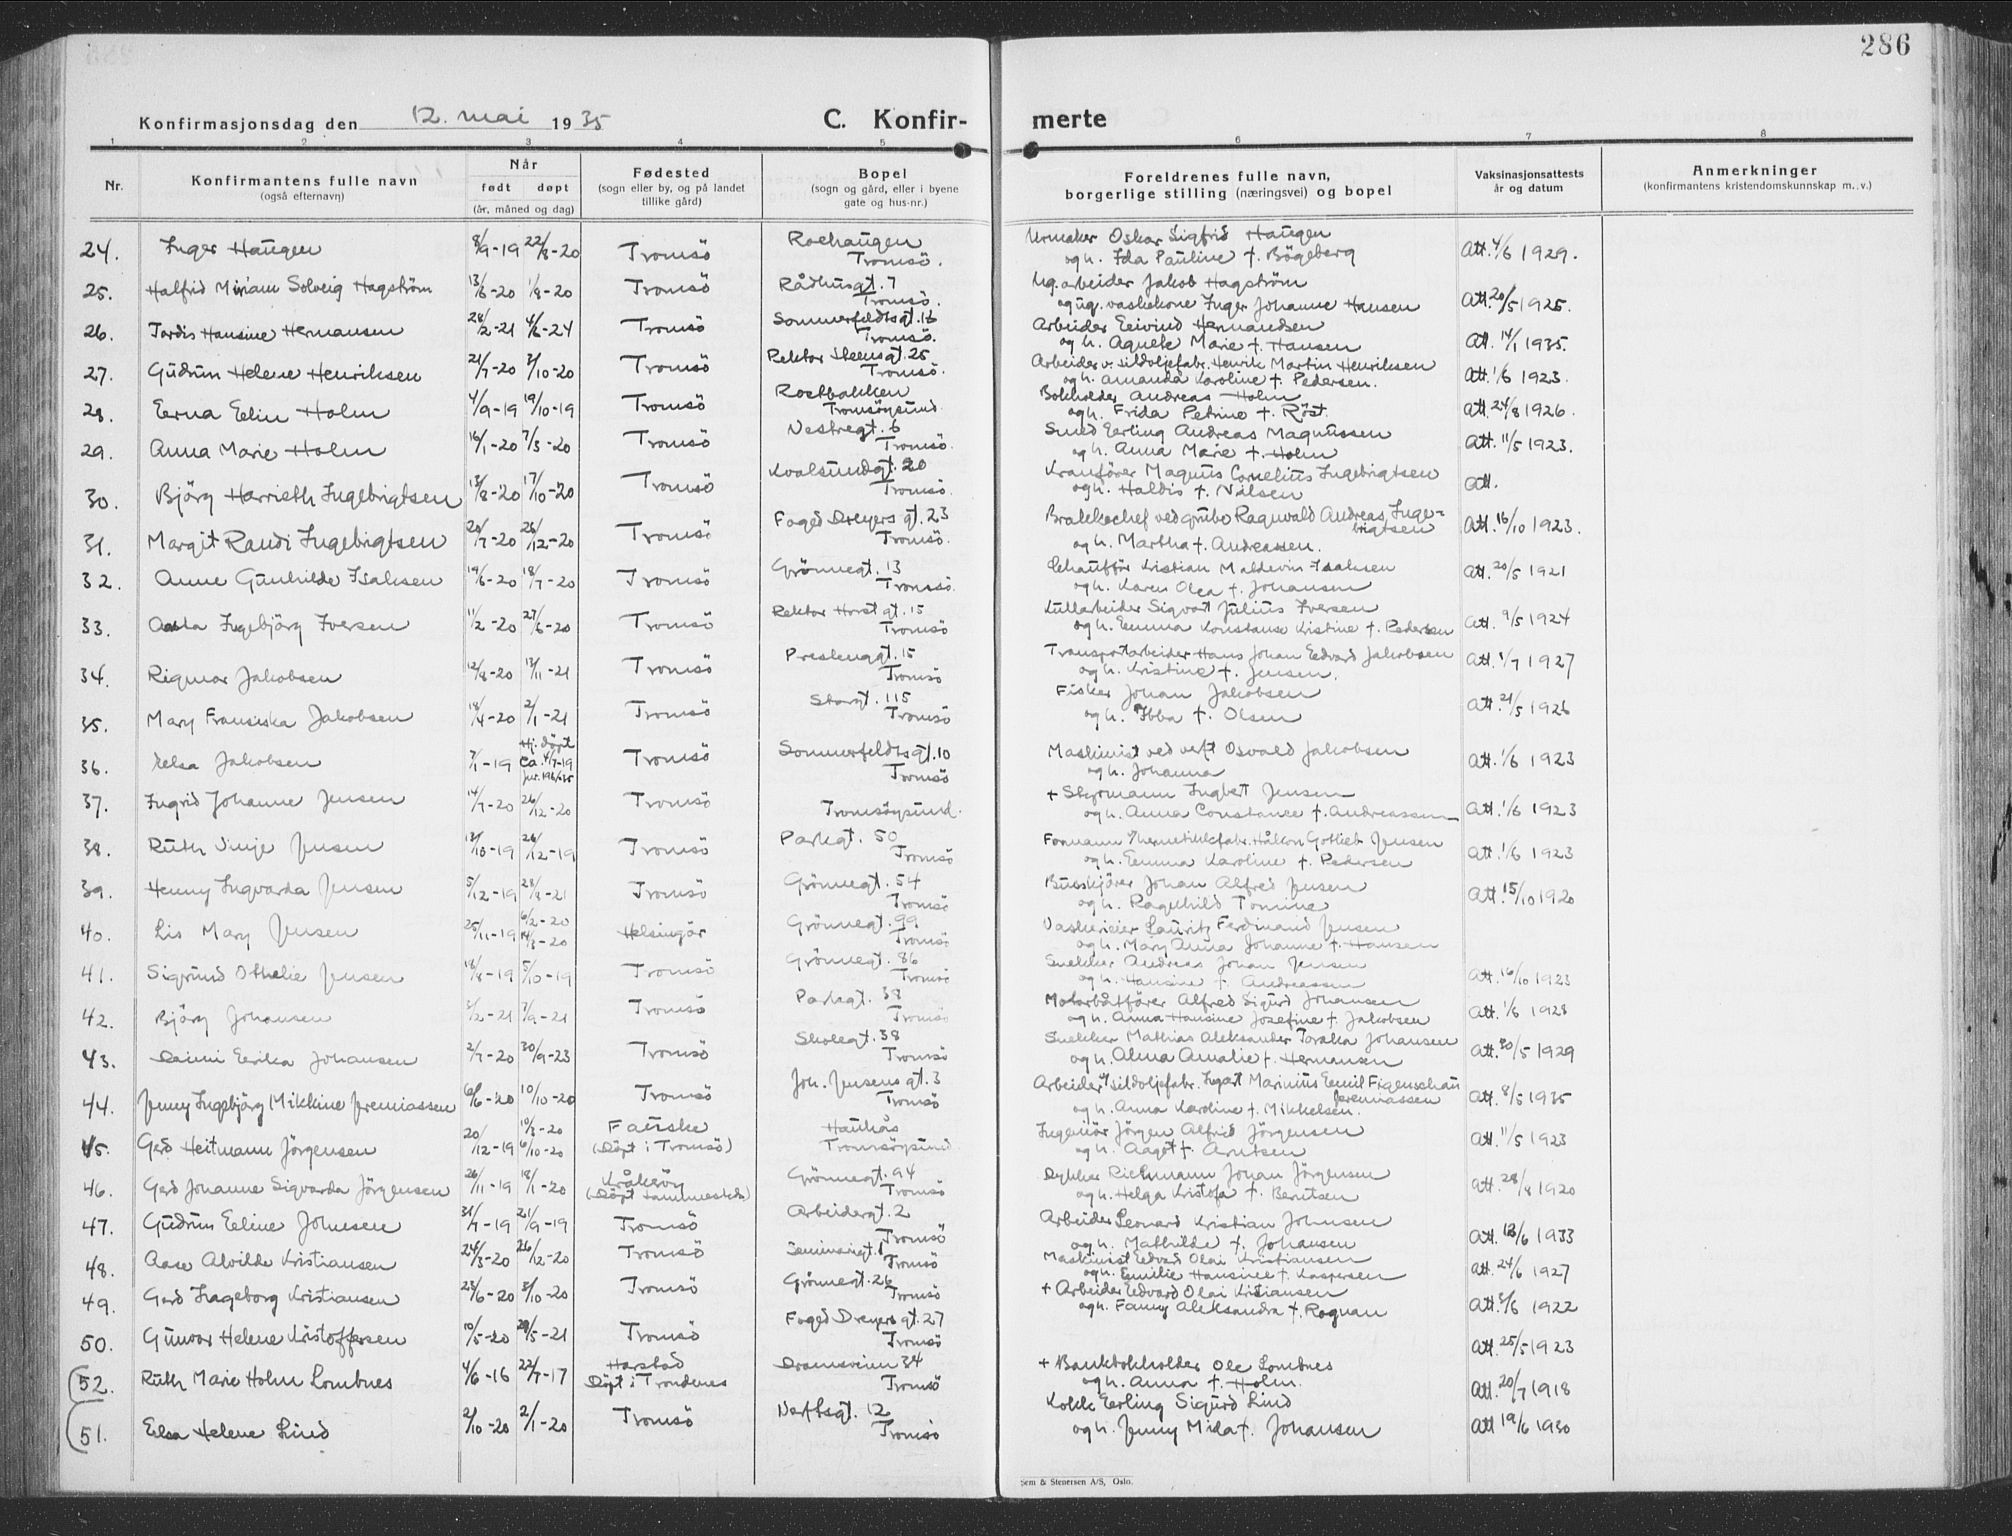 286
Konfirmasjonsdag den 12. mai 1935
C. Konfir-
merte
1 2 3 4 5 6 7 8
Nr.
Konfirmantens fulle navn
(også efternavn)
Når
født døpt
(år, måned og dag)
Fødested
(sogn eller by, og på landet
tillike gård)
Bopel
(sogn og gård, eller i byene
gate og hus-nr.)
Foreldrenes fulle navn,
borgerlige stilling (næringsvei) og bopel
Vaksinasjonsattests
år og datum
Anmerkninger
(konfirmantens kristendomskunnskap m. v.)
24. Inger Haugen 8/9-19 22/8-20 Tromsö Roehaugen Tromsö. Urmaker Oskar Sigfrid Haugen
og h. Ida Pauline f. Bögeberg Att. 4/6 1929.
25. Halfrid Miriam Solveig Hagström 13/6-20 1/8-20 Tromsö Rådhusgt. 7 Tromsö. Ug. arbeider Jakob Hagström
og ug. vaskekone Inger Johanne Hansen Att. 20/5 1925.
26. Jordis Hansine Hermansen 28/2-21 4/6-24 Tromsö Sommerfeldtsgt. 16 Tromsö. Arbeider Eeivind Hermandsen
og h. Agnete Marie f. Hansen Att. 14/1 1935.
27. Gudrun Helene Henriksen 21/7-20 3/10-20 Tromsö Rektor Steensgt. 25 Tromsö. Arbeider v. sildoljefabr. Henrik Martin Henriksen
og h. Amanda Karoline f. Pedersen. Att. 1/6 1923.
28. Eerna Eelin Holm 4/9-19 19/10-19 Tromsö Rostbakken Tromsöysund. Bokholder Andreas Holm
og h. Frida Petrine f. Röst. Att. 24/8 1926.
29. Anna Marie Holm 16/1-20 7/3-20 Tromsö Nestregt. 6 Tromsö. Smed Eerling Andreas Magnussen
og h. Anna Marie f. Holm Att. 11/5 1923.
30. Björg Harrieth Ingebrigtsen 13/8-20 17/10-20 Tromsö Kvalsundgt. 20 Tromsö. Kranförer Magnus Cornelius Ingebrigtsen
og h. Haldis f. Nilsen Att.
31. Margit Randi Ingebrigtsen 20/7-20 26/12-20 Tromsö Foged Dreyers gt. 23 Tromsö. Brakkechef ved grube Ragnvald Andreas Inge-
brigtsen
og h. Martha f. Andreassen. Att. 16/10 1923.
32. Anne Gunhilde Isaksen 19/6-20 18/7-20 Tromsö Grönnegt. 13 Tromsö. Schaufför Kristian Maldevin Isaksen
og h. Karen Olea f. Johansen Att. 20/5 1921
33. Aasta Ingebjörg Iversen 11/2-20 27/6-20 Tromsö Rektor Horst gt. 15 Tromsö Kullarbeider Sigvart Julius Iversen
og h. Emma Konstanse Kristine f. Pedersen Att. 9/5 1924
34. Rigmor Jakobsen 12/8-20 13/11-21 Tromsö Prestenggt. 15 Tromsö Transportarbeider Hans Johan Eedvard Jakobsen
og h. Kristine f. Jensen. Att. 1/7 1927
35. Mary Fransiska Jakobsen 18/4-20 2/1-21 Tromsö Storgt. 115 Tromsö Fisker Johan Jakobsen
og h. Ebba f. Olsen Att. 21/5 1926
36. Elsa Jakobsen 7/1-19 Hj. döpt ca. 4/7-19 Tromsö Sommerfeldtsgt. 10 Tromsö Maskinist ved verft Osvald Jakobsen
og h. Johanna Att. 1/6 1923
37. Ingrid Johanne Jensen 14/7-20 26/12-20 Tromsö Tromsöysund. + Styrmann Ingbert Jensen
og h. Anna Constance f. Andreassen Att. 1/6 1923
38. Ruth Signe Jensen 13/10-19 26/12-19 Tromsö Parkgt. 50 Tromsö Formann Hermetikkfabr. Håkon Gotlieb Jensen
og h. Eemma Karoline f. Pedersen Att. 1/6 1923
39. Henny Ingvarda Jensen 5/12-19 28/8-21 Tromsö Grönnegt. 54 Tromsö Busskjörer Johan Alfred Jensen
og h. Ragnhild Tomine Att. 15/10 1920
40. Lis Mary Jensen 25/11-19 6/2-20 14/3-20 Helsingör Grönnegt. 99 Tromsö Vaskerieier Lauritz Ferdinand Jensen
og h. Mary Anna Johanne f. Hansen
41. Sigrund Othelie Jensen 18/8-19 5/10-19 Tromsö Grönnegt. 86 Tromsö Snekker Andreas Johan Jensen
og h. Hansine f. Andreassen Att. 16/10 1923
42. Björg Johansen 3/2-21 7/9-21 Tromsö Parkgt. 38 Tromsö Motorbåtförer Alfred Sigurd Johansen
og h. Anna Hansine Josefine f. Jakobsen Att. 1/6 1928
43. Daimi Eerika Johansen 2/7-20 30/9-23 Tromsö Skolegt. 38 Tromsö Snekker Mathias Aleksander Toraka Johansen
og h. Alma Amalie f. Hermansen Att. 30/5 1929
44. Jenny Ingebjörg Mikkine Jeremiassen 6/6-20 10/10-20 Tromsö Joh. Jensens gt. 3 Tromsö Arbeider v/ sildoljefabr. Ingart Marinius Eemil Figenschau
Jeremiassen
og h. Anna Karoline f. Mikkelsen. Att. 8/5 1935
45. Gerd Heitmann Jörgensen 20/12-19 10/3-20 6/10-20 Fauske (Döpt i Tromsö) Haunås Tromsöysund Ingeniör Jörgen Alfred Jörgensen
og h. Aagot f. Arntsen Att. 11/5 1923
46. Gerd Johanne Sigvarda Jörgensen 26/11-19 18/1-20 Kråkeröy (Döpt sammesteds) Grönnegt. 94 Tromsö Dykker Richmann Johan Jörgensen
og h. Helga Kristofa f. Berntsen Att. 28/8 1920
47. Gudrun Eeline Johnsen 31/7-19 21/9-19 Tromsö Arbeidergt. 2 Tromsö Arbeider Leonard Kristian Johnsen
og h. Mathilde f. Johansen Att. 13/6 1933
48. Aase Alvilde Kristiansen 24/3-20 26/12-20 Tromsö Seminarigt. 1 Tromsö Maskinist Eedvard Olai Kristiansen
og h. Emilie Hansine f. Kaspersen Att. 24/6 1927
49. Gerd Ingeborg Kristiansen 23/6-20 3/10-20 Tromsö Grönnegt. 26 Tromsö + Arbeider Eedvard Olai Kristiansen
og h. Fanny Aleksandra f. Rognan Att. 3/6 1922
50. Gunvor Helene Kristoffersen 10/5-20 29/5-21 Tromsö Foged Dreyers gt. 27 Tromsö Att. 25/5 1923
52. Ruth Marie Holm Lombnes 4/6-16 22/7-17 Harstad Döpt i Trondenes Dramsveien 34 Tromsö + Bankbokholder Ole Lombnes
og h. Anna f. Holm. Att. 20/7 1918
51. Elsa Helene Lind 2/10-20 2/1-20 Tromsö Verftsgt. 12 Tromsö Kokk Eerling Sigurd Lind
og h. Jenny Mida f. Johansen Att 19/6 1930
Sem & Stenersen A/S, Oslo.